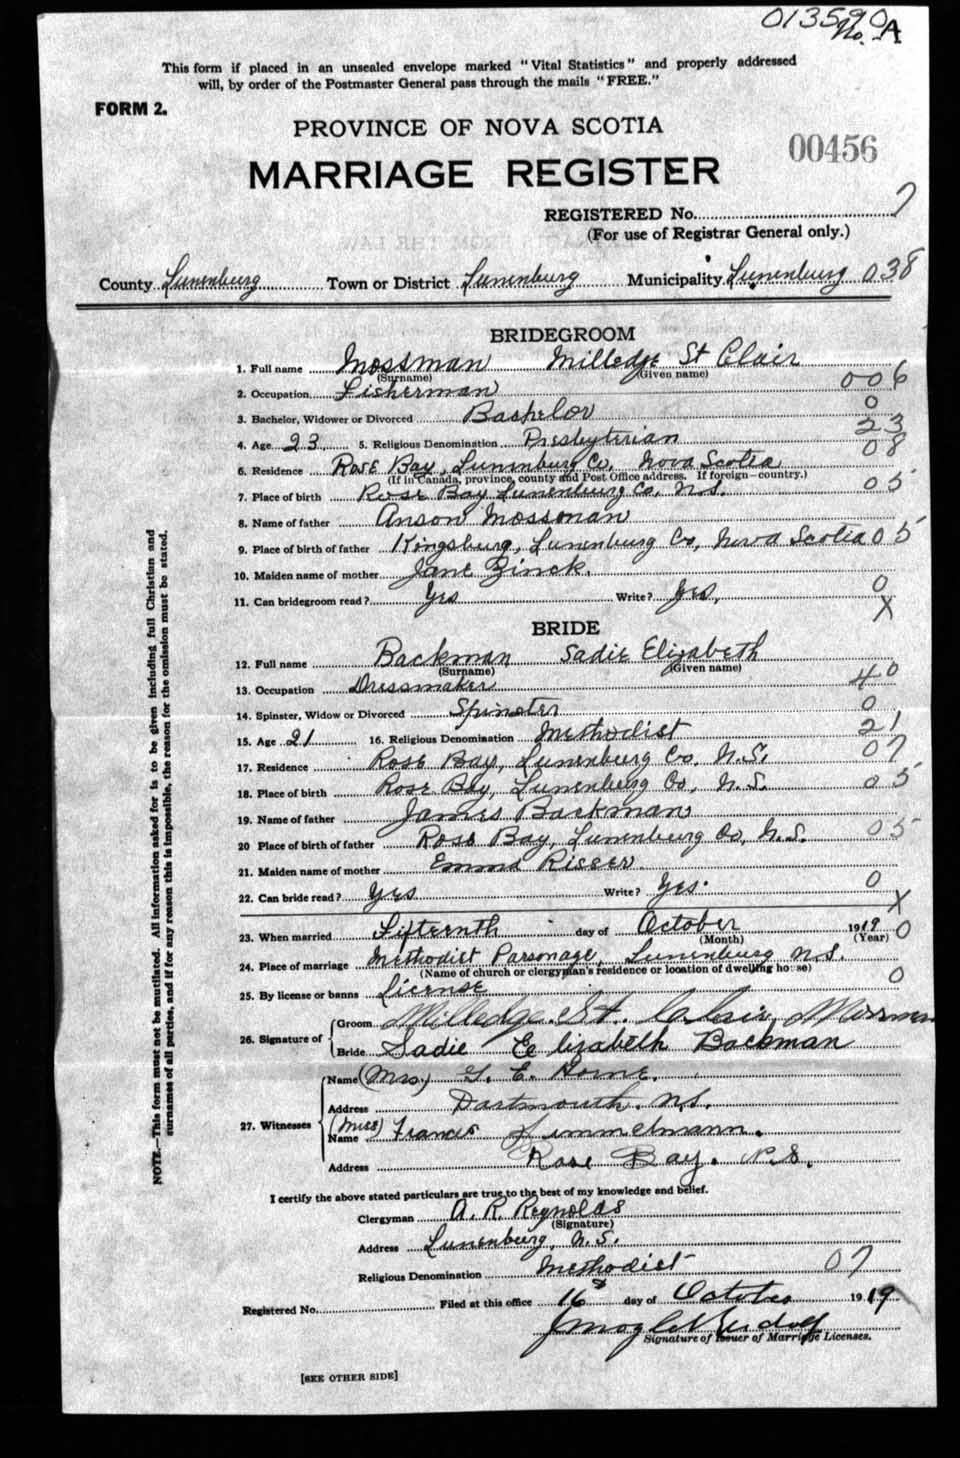 013590
No. A
This form if placed in an unsealed envelope marked "Vital Statistics" and properly addressed
will, by order of the Postmaster General pass through the mails "FREE."
FORM 2.
PROVINCE OF NOVA SCOTIA
00456
MARRIAGE REGISTER
REGISTERED No. 7
(For use of Registrar General only.)
County Lunenburg Town or District Lunenburg Municipality Lunenburg 038
BRIDEGROOM
1. Full name Mossman Milledge St Clair
(Surname) (Given name)
2. Occupation Fisherman 006
3. Bachelor, Widower or Divorced Bachelor 0
4. Age 23 5. Religious Denomination Presbyterian 23
6. Residence Rose Bay, Lunenburg Co. Nova Scotia 08
(If in Canada, province, county and Post Office address. If foreign—country.)
7. Place of birth Rose Bay Lunenburg Co, N.S. 05
8. Name of father Anson Mossman
9. Place of birth of father Kingsburg, Lunenburg Co, Nova Scotia 05
10. Maiden name of mother Jane Zinck.
11. Can bridegroom read? Yes Write? Yes, 0
X
BRIDE
12. Full name Backman Sadie Elizabeth
(Surname) (Given name)
13. Occupation Dressmaker 40
14. Spinster, Widow or Divorced Spinster 0
15. Age 21 16. Religious Denomination Methodist 21
17. Residence Rose Bay, Lunenburg Co, N.S. 07
18. Place of birth Rose Bay, Lunenburg Co, N.S. 05
19. Name of father James Backman
20 Place of birth of father Rose Bay, Lunenburg Co, N.S. 05
21. Maiden name of mother Emma Risser.
22. Can bride read? Yes Write? Yes. 0
X
23. When married Fifteenth day of October 1919 0
(Month) (Year)
24. Place of marriage Methodist Parsonage, Lunenburg N.S.
(Name of church or clergyman's residence or location of dwelling house)
25. By license or banns License 0
26. Signature of Groom Milledge St. Clair Mossman
Bride Sadie Elizabeth Backman
27. Witnesses Name (Mrs.) G. E. Horne.
Address Dartmouth. N.S.
(Miss) Name Frances Zimmelmann.
Address Rose Bay. N.S.
I certify the above stated particulars are true to the best of my knowledge and belief.
Clergyman A. R. Reynolds
(Signature)
Address Lunenburg, N.S.
Religious Denomination Methodist 07
Registered No. Filed at this office 16 day of October 1919
Signature of Issuer of Marriage Licenses.
[SEE OTHER SIDE]
NOTE.—This form must not be mutilated. All information asked for is to be given including full Christian and
surnames of all parties, and if for any reason this is impossible, the reason for the omission must be stated.